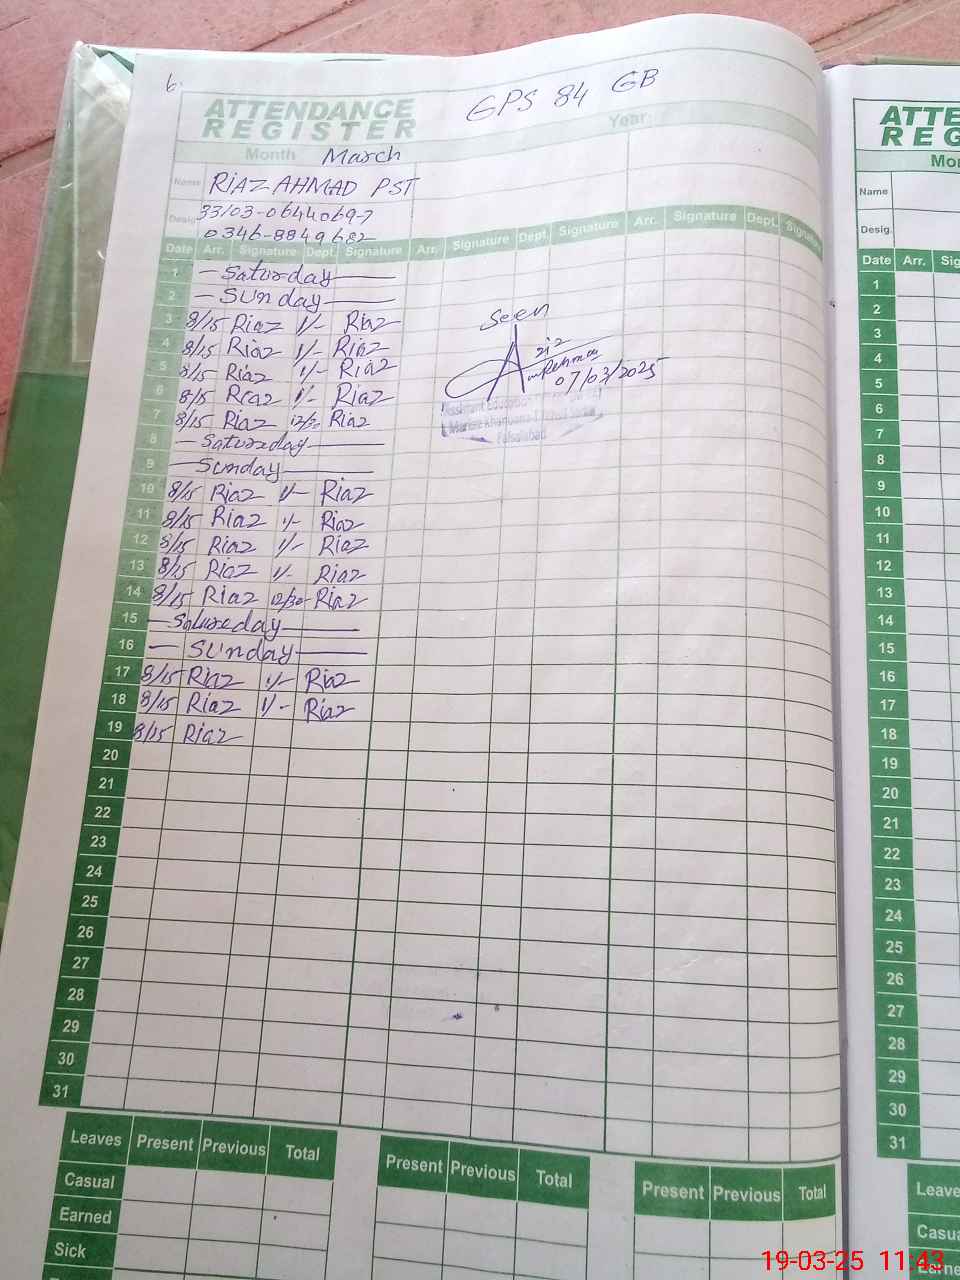 6.
GPS 84 GB
ATTENDANCE
REGISTER
Year
Month March
Name RIAZ AHMAD PST
33103-0644069-7
Desig. 0346-8849682
Date Arr. Signature Dept. Signature Arr. Signature Dept. Signature Arr. Signature Dept. Signature
1 — Saturday —
2 — Sunday —
3 8/15 Riaz 1/- Riaz
4 8/15 Riaz 1/- Riaz
5 8/15 Riaz 1/- Riaz
6 8/15 Riaz 1/- Riaz
7 8/15 Riaz 12/30 Riaz
8 — Saturday —
9 — Sunday —
10 8/15 Riaz 1/- Riaz
11 8/15 Riaz 1/- Riaz
12 8/15 Riaz 1/- Riaz
13 8/15 Riaz 1/- Riaz
14 8/15 Riaz 12/30 Riaz
15 — Saturday —
16 — Sunday —
17 8/15 Riaz 1/- Riaz
18 8/15 Riaz 1/- Riaz
19 8/15 Riaz
20
21
22
23
24
25
26
27
28
29
30
31
Seen
07/03/2025
Assistant Education
Faisalabad
Leaves Present Previous Total Present Previous Total Present Previous Total
Casual
Earned
Sick
ATTE
REG
Mo
Name
Desig.
Date Arr. Sig
1
2
3
4
5
6
7
8
9
10
11
12
13
14
15
16
17
18
19
20
21
22
23
24
25
26
27
28
29
30
31
Leave
Casu
Earne
19-03-25 11:43